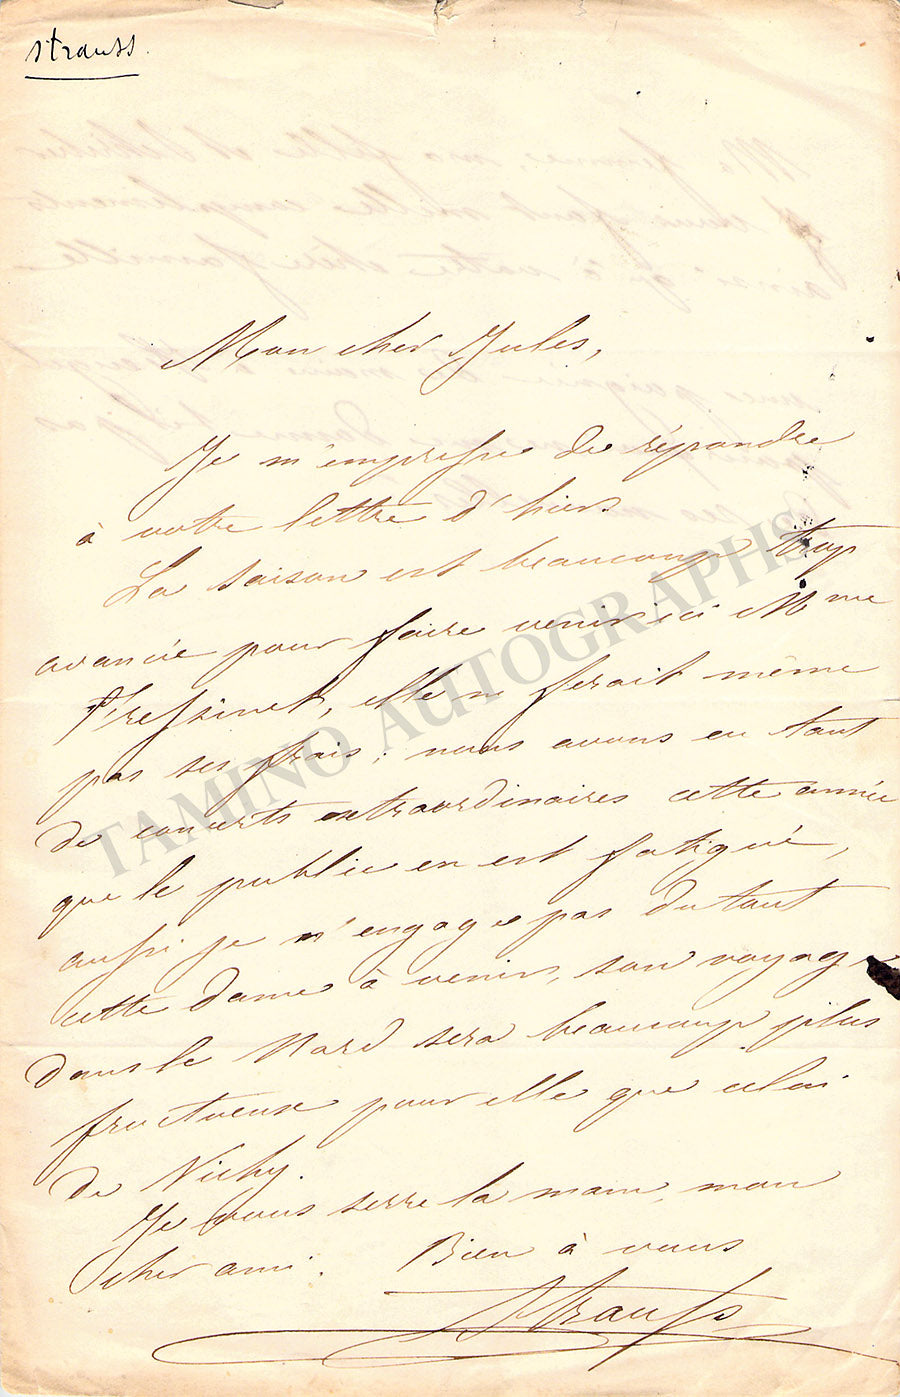 strauss.
Mon cher Jules,
Je m'empresse de répondre
à votre lettre d'hier.
La saison est beaucoup trop
avancée pour faire venir ici Mme
Fressinet, elle n ferait même
pas ses frais; nous avons eu tant
de concerts extraordinaires cette année
que le public en est fatigué,
aussi je n'engage pas du tout
cette dame à venir, son voyage
dans le Nord sera beaucoup plus
fructueuse pour elle que celui
de Vichy.
Je vous serre la main, mon
cher ami. Bien à vous
Strauss
TAMINO AUTOGRAPHS